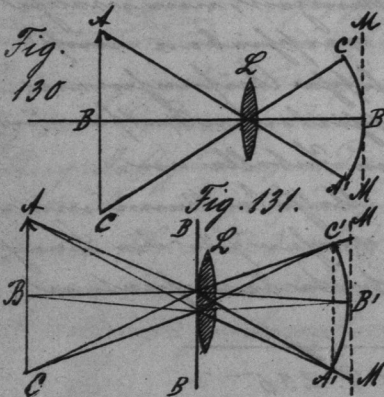 Fig. 130
A
B
C
L
M
C'
B
A'
M
Fig. 131.
A
B
C
B
L
B
M
C'
B'
A'
M